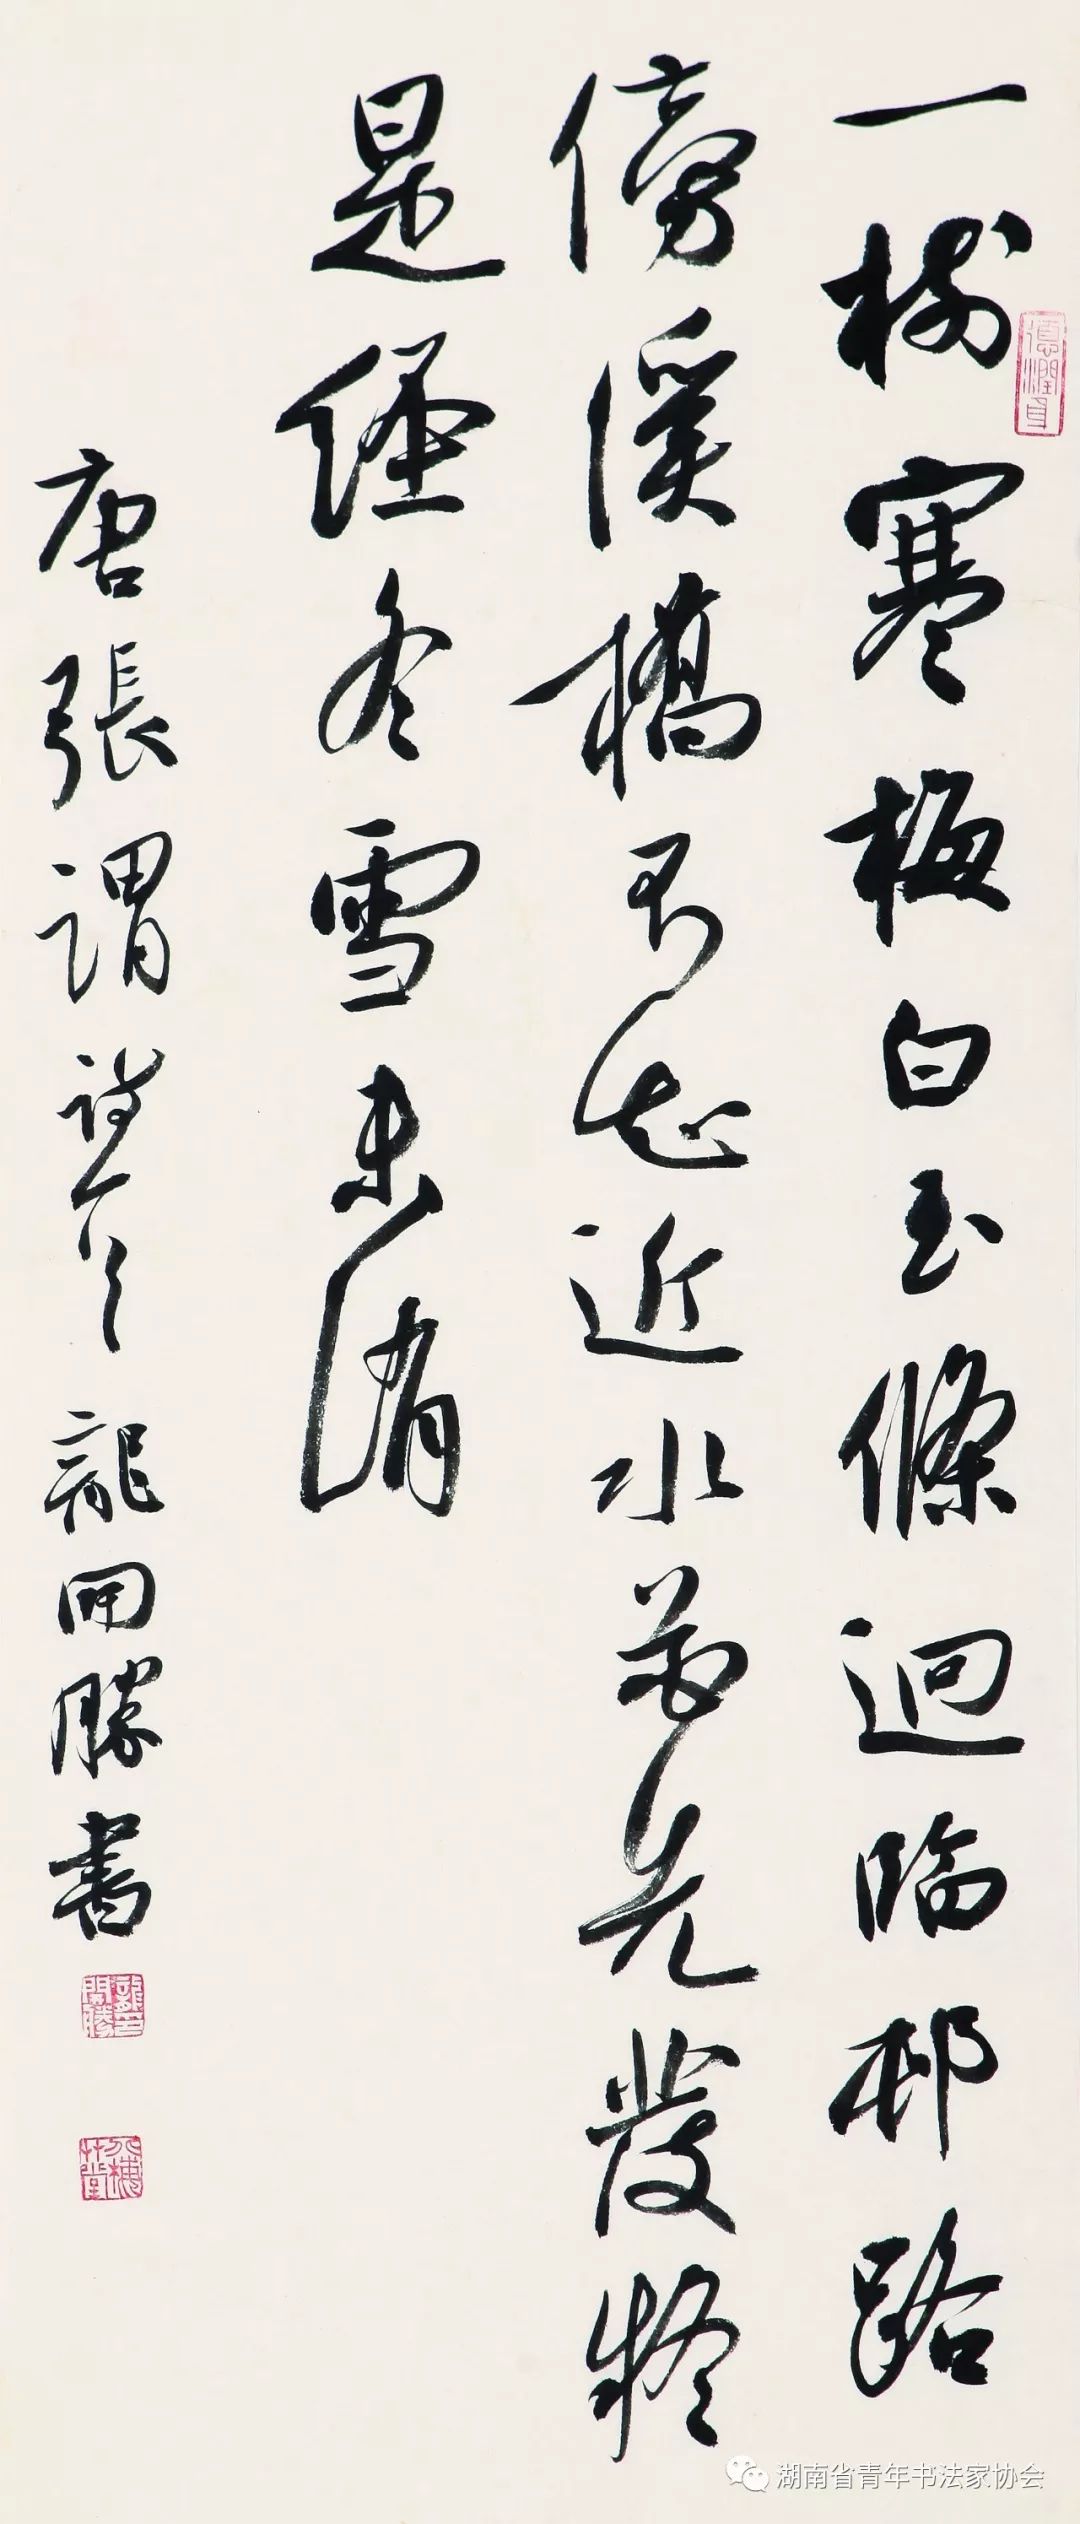 德潤身
一樹寒梅白玉條迥臨邨路
傍溪橋不知近水花先發疑
是經冬雪未消
唐張謂詩一首龍開勝書
龍印開勝
湖南省青年书法家协会